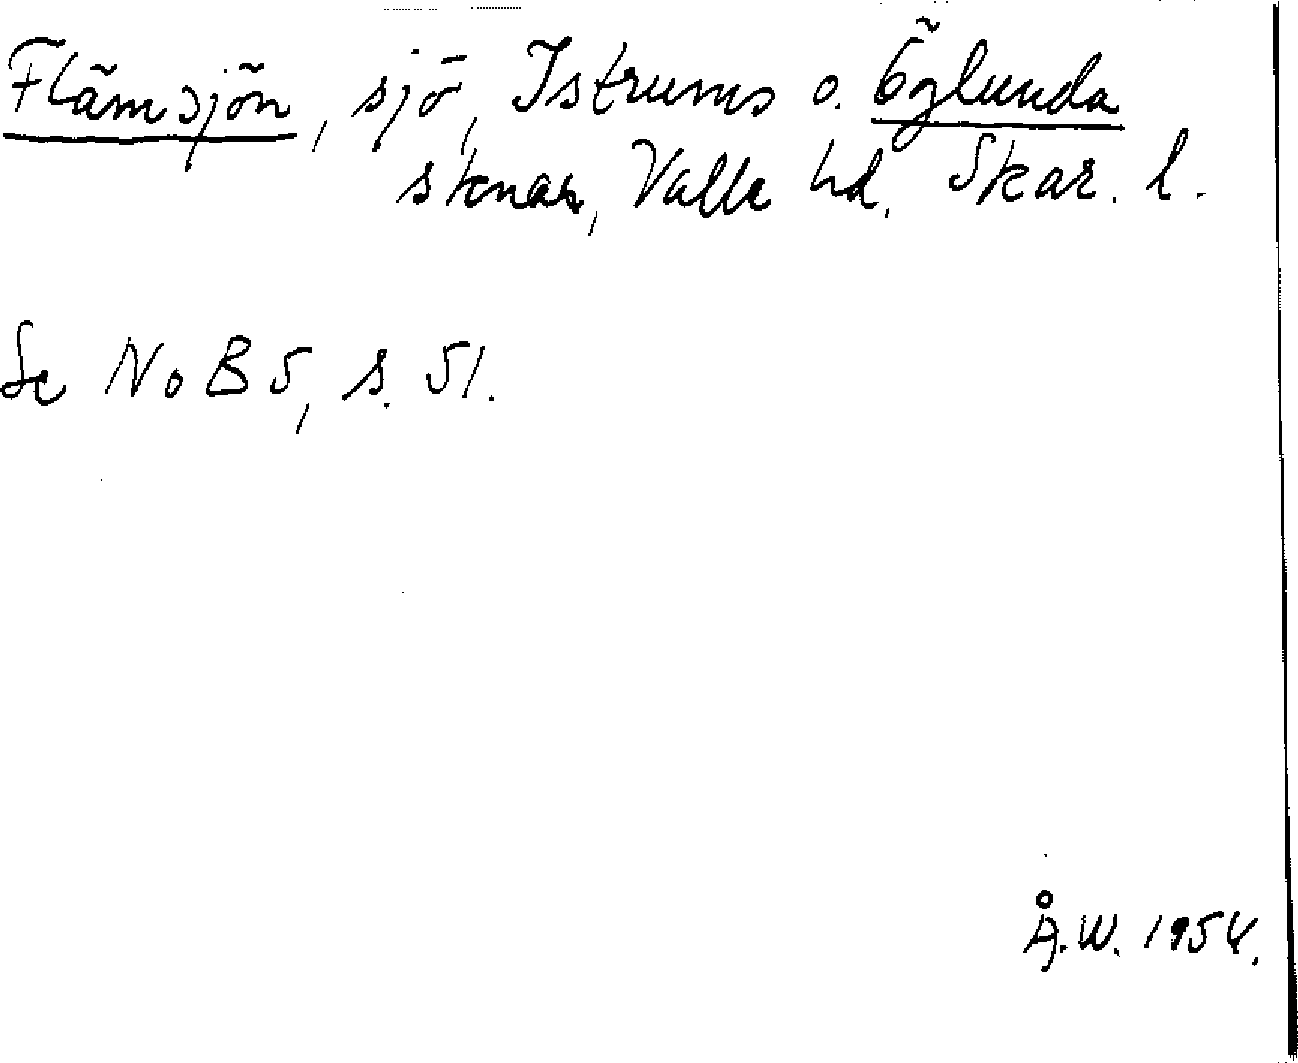 Flämsjön, sjö, Istrums o. Öglunda
sknar, Valle hd, Skar. l.
Se NoB 5, s. 51.
Å.W. 1954.